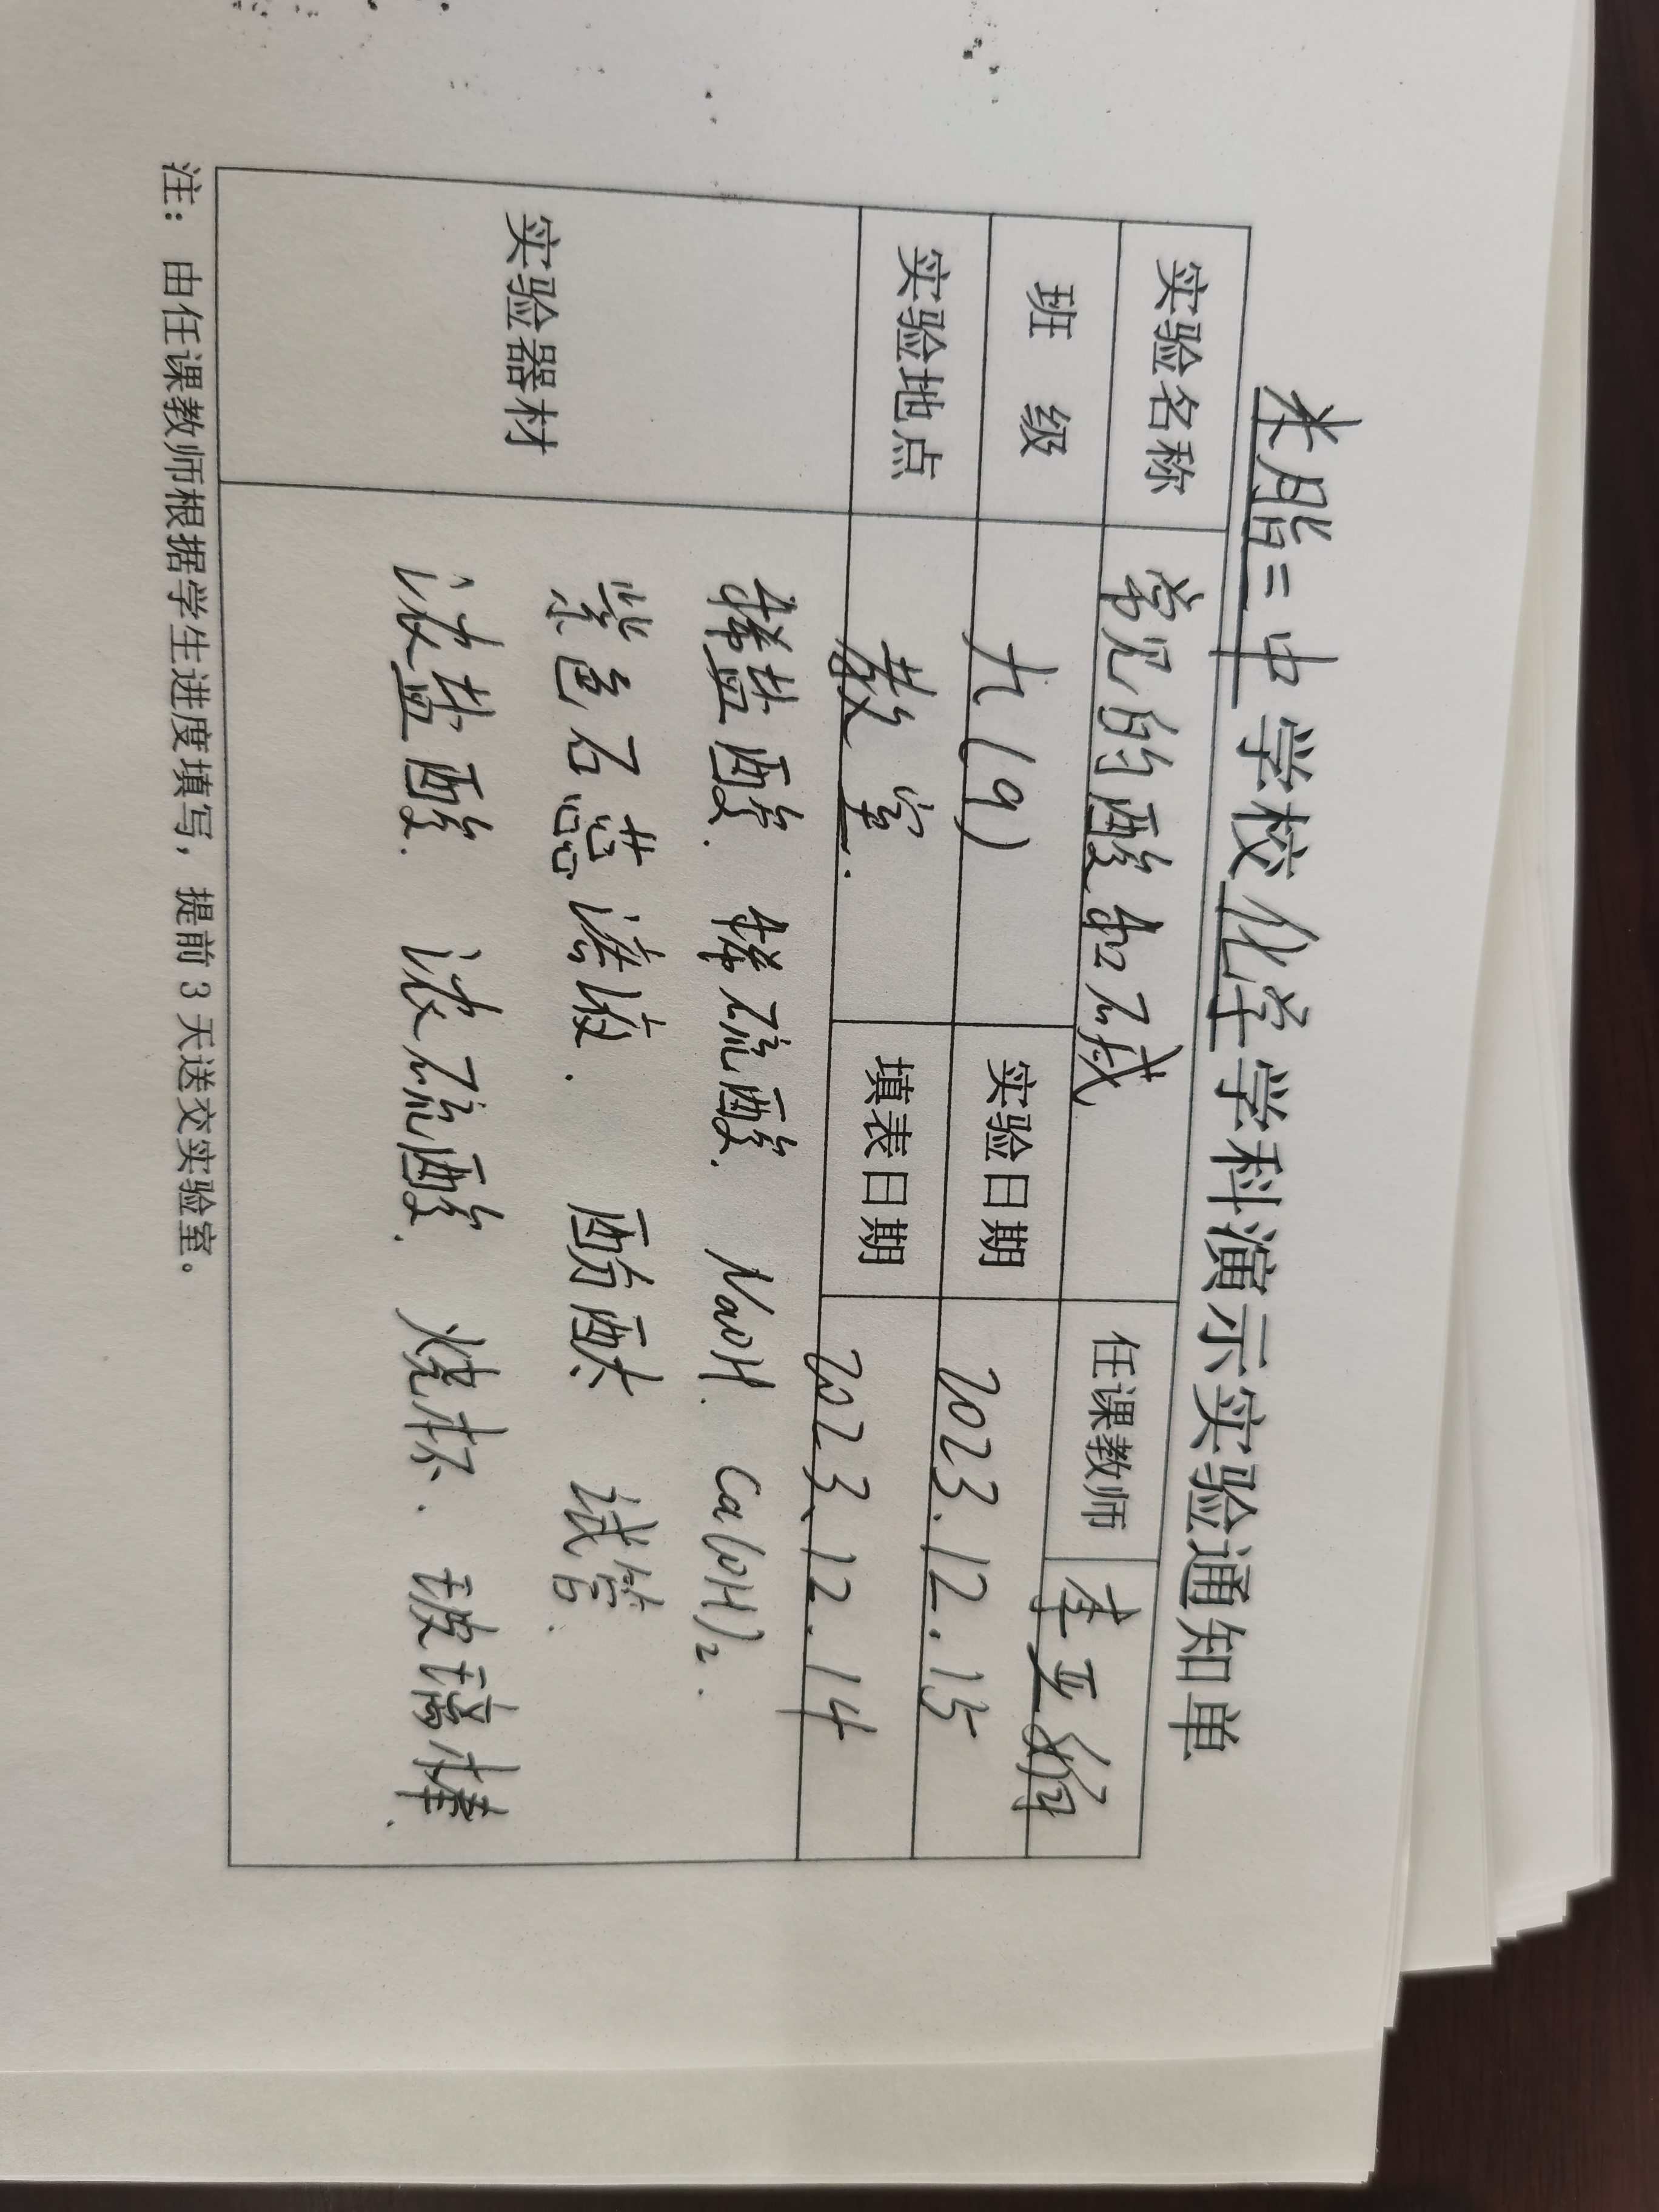 米脂二中学校化学学科演示实验通知单
实验名称 常见的酸和碱 任课教师 李亚
班 级 九(9) 实验日期 2023.12.15
实验地点 教室. 填表日期 2023.12.14
实验器材
稀盐酸. 稀硫酸. NaOH. Ca(OH)₂.
紫色石蕊溶液. 酚酞 试管.
浓盐酸. 浓硫酸. 烧杯. 玻璃棒.
注：由任课教师根据学生进度填写，提前3天送交实验室。